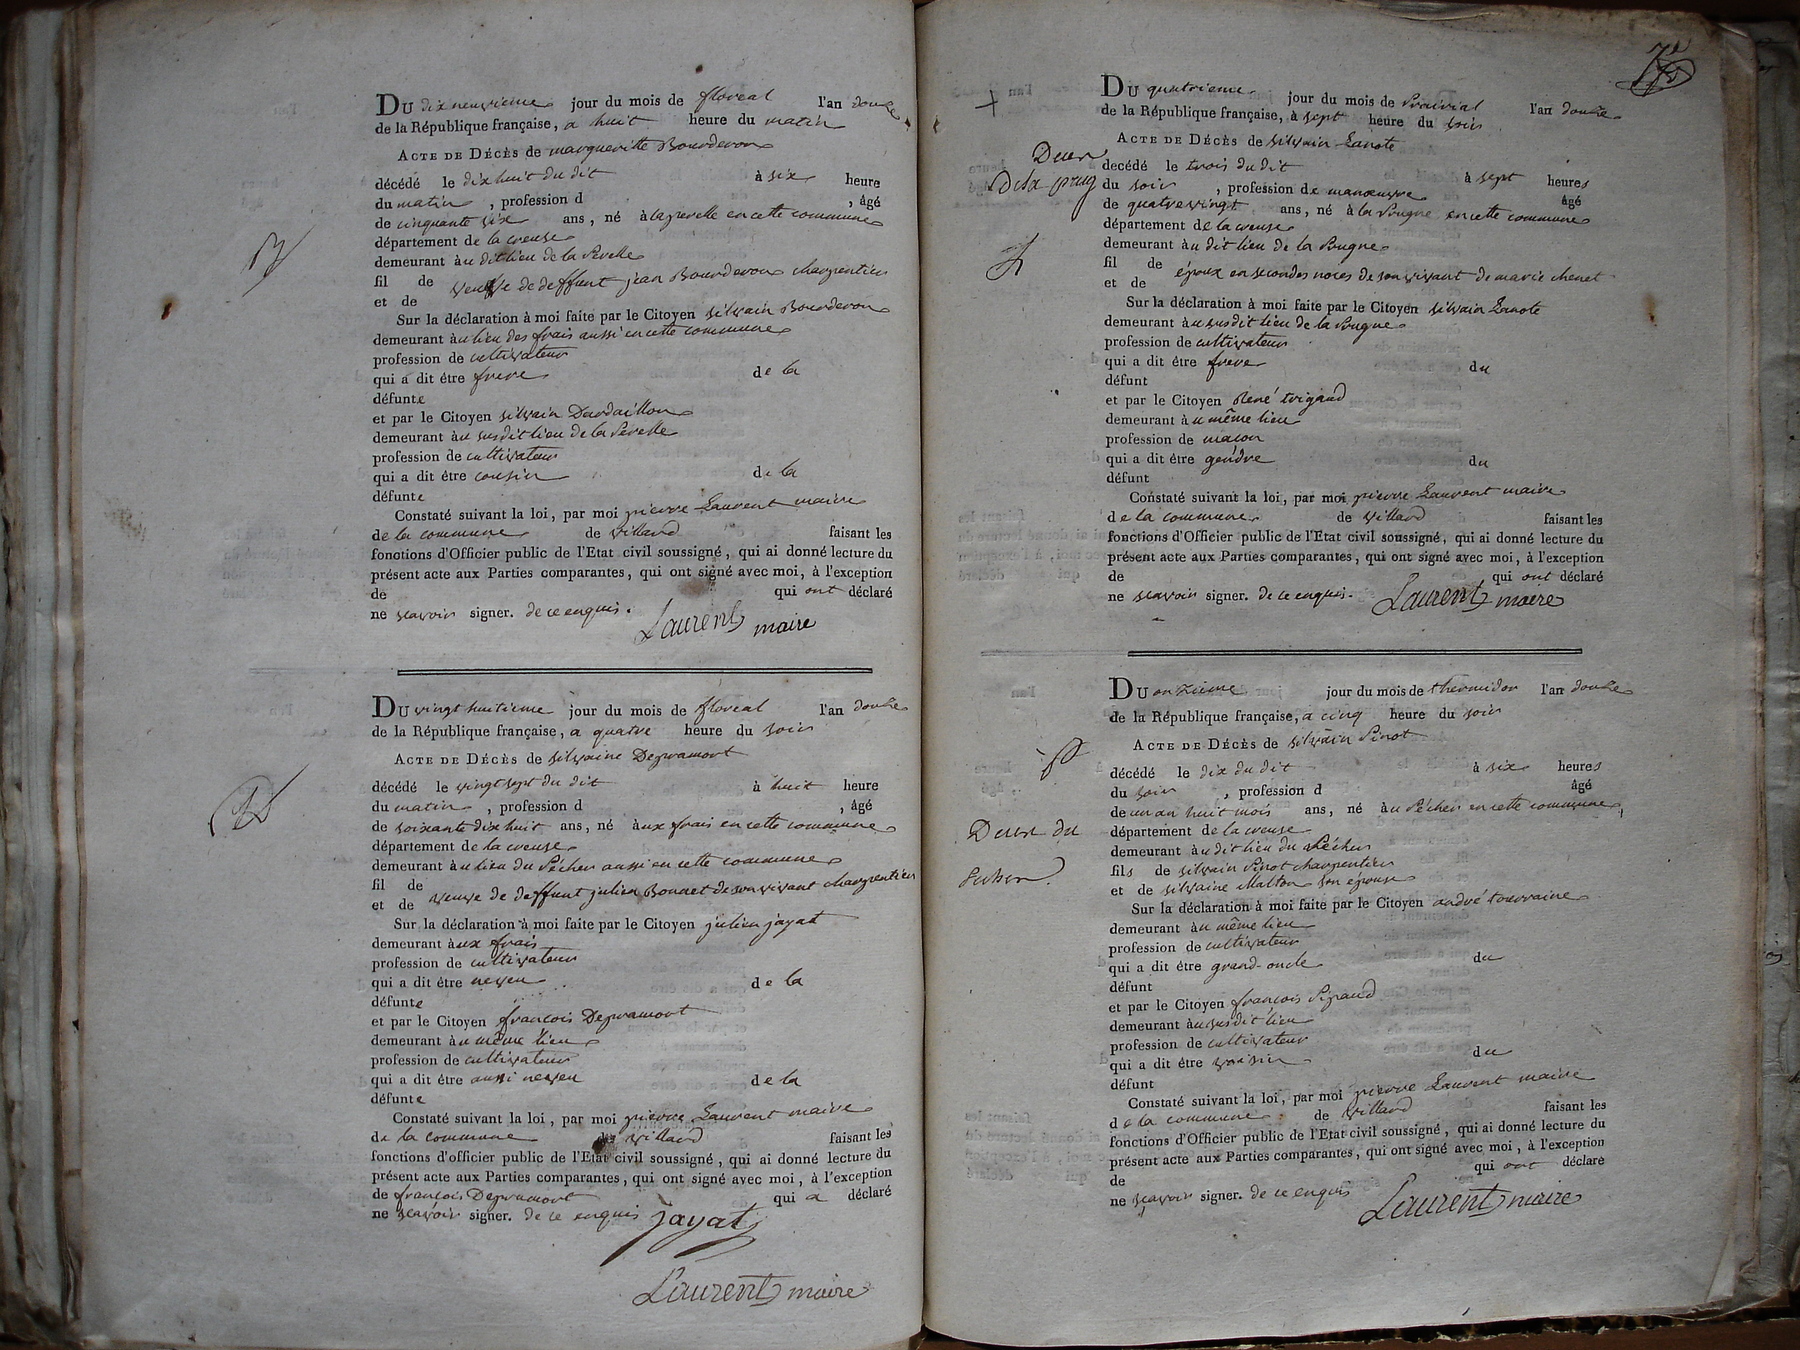 DU dix neuvieme jour du mois de floreal l'an douze
de la République française, a huit heure du matin
ACTE DE DÉCÈS de margueritte Bourderon
décédé le dix huit du dit à six heure
du matin, profession d , âgé
de cinquante six ans, né à la perelle en cette commune
département de la creuse
demeurant àu dit lieu de la Perelle
fil de veuve de deffunt jean Bourderon charpentier
et de
Sur la déclaration à moi faite par le Citoyen silvain Bourderon
demeurant àu lieu des frais aussi en cette commune
profession de cultivateur
qui a dit étre frere de la
défunte
et par le Citoyen silvain Dardaillon
demeurant àu susdit lieu de la Perelle
profession de cultivateur
qui a dit étre cousin de la
défunte
Constaté suivant la loi, par moi pierre Laurent maire
de la commune de villard faisant les
fonctions d'Officier public de l'Etat civil soussigné, qui ai donné lecture du
présent acte aux Parties comparantes, qui ont signé avec moi, à l'exception
de qui ont déclaré
ne scavoir signer. de ce enquis.
Laurent maire
DU vingt huitieme jour du mois de floreal l'an douze
de la République française, a quatre heure du soir
ACTE DE DÉCÈS de silvaine Depramont
décédé le vingt sept du dit à huit heure
du matin, profession d , âgé
de soixante dix huit ans, né àux frais en cette commune
département de la creuse
demeurant àu lieu du Pécher aussi en cette commune
fil de veuve de deffunt julien Bonnet de son vivant charpentier
et de
Sur la déclaration à moi faite par le Citoyen julien jayat
demeurant àux frais
profession de cultivateur
qui a dit étre neveu de la
défunte
et par le Citoyen françois Depramont
demeurant àu même lieu
profession de cultivateur
qui a dit étre aussi neveu de la
défunte
Constaté suivant la loi, par moi pierre Laurent maire
de la commune de villard faisant les
fonctions d'officier public de l'Etat civil soussigné, qui ai donné lecture du
présent acte aux Parties comparantes, qui ont signé avec moi, à l'exception
de françois Depramont qui a déclaré
ne scavoir signer. de ce enquis
jayat
Laurent maire
DU quatrieme jour du mois de Prairial l'an douze
de la République française, à sept heure du soir
ACTE DE DÉCÈS de silvain Lanote
decédé le trois du dit à sept heures
du soir, profession de manœuvre âgé
de quatre vingt ans, né à la Pougne en cette commune
département de la creuse
demeurant àu dit lieu de la Pougne
fil de époux en secondes noces de son vivant de marie chenet
et de
Sur la déclaration à moi faite par le Citoyen silvain Lanote
demeurant àu susdit lieu de la Pougne
profession de cultivateur
qui a dit étre frere du
défunt
et par le Citoyen René trigaud
demeurant àu même lieu
profession de macon
qui a dit étre gendre du
défunt
Constaté suivant la loi, par moi pierre Laurent maire
de la commune de villard faisant les
fonctions d'Officier public de l'Etat civil soussigné, qui ai donné lecture du
présent acte aux Parties comparantes, qui ont signé avec moi, à l'exception
de qui ont déclaré
ne scavoir signer. de ce enquis.
Laurent maire
DU onzieme jour du mois de thermidor l'an douze
de la République française, a cinq heure du soir
ACTE DE DÉCÈS de silvain Pinot
décédé le dix du dit à six heures
du soir, profession d âgé
de un an huit mois ans, né àu Pécher en cette commune
département de la creuse
demeurant àu dit lieu du Pécher
fils de silvain Pinot charpentier
et de silvaine Malton son épouse
Sur la déclaration à moi faite par le Citoyen andré tourraine
demeurant àu même lieu
profession de cultivateur
qui a dit étre grand-oncle du
défunt
et par le Citoyen françois Pigaud
demeurant àu susdit lieu
profession de cultivateur
qui a dit étre voisin du
défunt
Constaté suivant la loi, par moi pierre Laurent maire
de la commune de villard faisant les
fonctions d'Officier public de l'Etat civil soussigné, qui ai donné lecture du
présent acte aux Parties comparantes, qui ont signé avec moi, à l'exception
de qui ont déclaré
ne scavoir signer. de ce enquis
Laurent maire